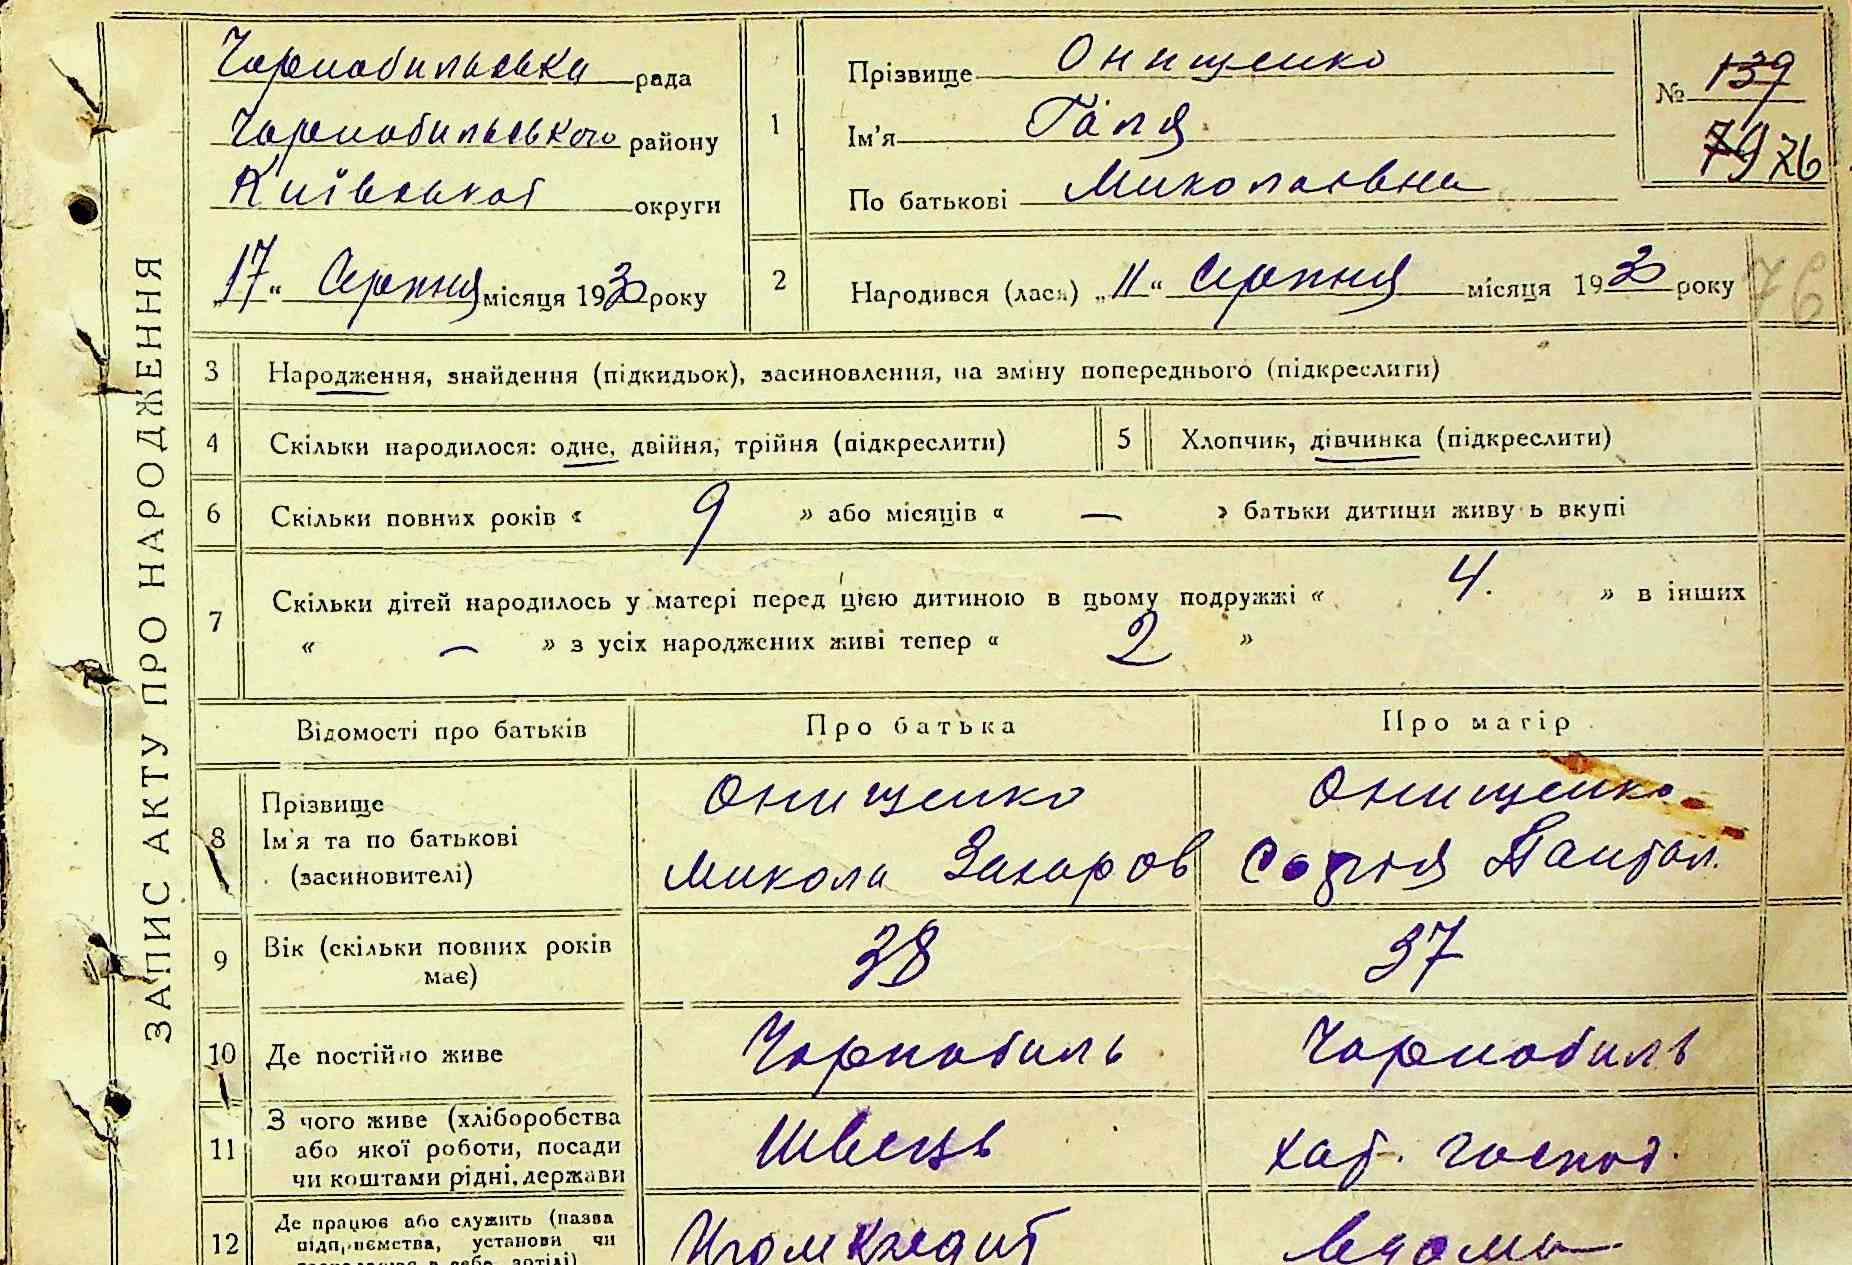 ЗАПИС АКТУ ПРО НАРОДЖЕННЯ
Чорнобильська рада
Чорнобильського району
Київської округи
„17“ Серпня місяця 1930 року
1 Прізвище Онищенко
Ім'я Галя
По батькові Миколаївна
№ 139
79 76
2 Народився (лася) „11“ Серпня місяця 1930 року
76
3 Народження, знайдення (підкидьок), засиновлення, на зміну попереднього (підкреслити)
4 Скільки народилося: одне, двійня, трійня (підкреслити) 5 Хлопчик, дівчинка (підкреслити)
6 Скільки повних років « 9 » або місяців « — » батьки дитини живуть вкупі
7 Скільки дітей народилось у матері перед цією дитиною в цьому подружжі « 4. » в інших
« — » з усіх народжених живі тепер « 2 »
Відомості про батьків Про батька Про матір
8 Прізвище Онищенко Онищенко
Ім'я та по батькові Микола Захаров Софія Пантол.
(засиновителі)
9 Вік (скільки повних років має) 38 37
10 Де постійно живе Чорнобиль Чорнобиль
11 З чого живе (хліборобства Швець хат. господ.
або якої роботи, посади
чи коштами рідні, держави
12 Де працює або служить (назва Промкредит вдома
підприємства, установи чи